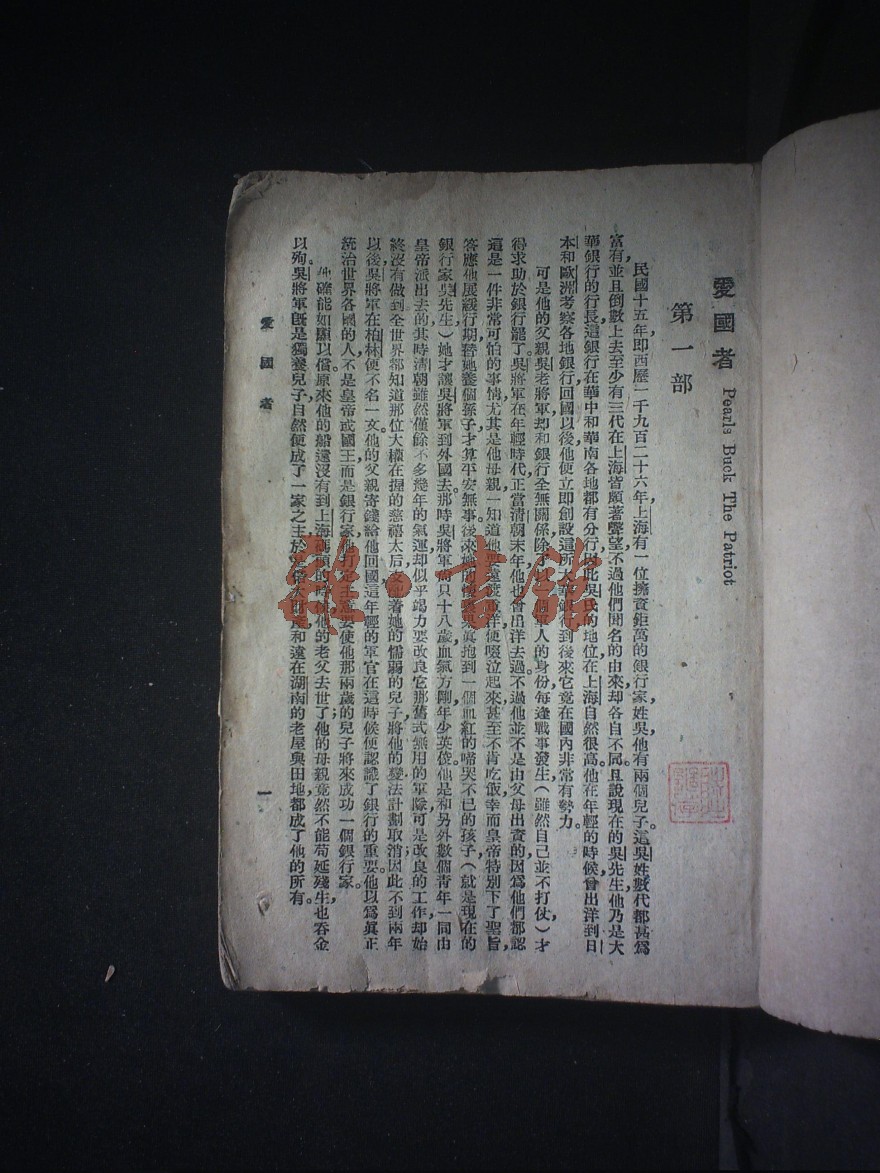 愛國者 Pearls Buck The Patriot
第一部
民國十五年，卽西歷一千九百二十六年，上海有一位擁資鉅萬的銀行家姓吳，他有兩個兒子。這吳姓數代都甚爲
富有，並且倒數上去至少有三代在上海皆頗著聲望，不過他們聞名的由來，却各自不同。且說現在的吳先生，他乃是大
華銀行的行長，這銀行在華中和華南各地都有分行，因此吳氏的地位在上海自然很高。他在年輕的時候曾出洋到日
本和歐洲考察各地銀行，回國以後，他便立即創設這所大華銀行，到後來它竟在國內非常有勢力。
可是他的父親吳老將軍却和銀行全無關係，除了以一個軍人的身份，每逢戰事發生（雖然自己並不打仗）才
得求助於銀行罷了。吳將軍在年輕時代，正當清朝末年，他也曾出洋去過，不過他並不是由父母出資的，因爲他們都認
這是一件非常可怕的事情，尤其是他母親一知道他要遠渡重洋，便啜泣起來，甚至不肯吃飯，幸而皇帝特別下了聖旨，
答應他展緩行期，替她養個孫子，才算平安無事。後來她的懷裏果眞抱到一個血紅的啼哭不已的孩子（就是現在的
銀行家吳先生）她才讓吳將軍到外國去。那時吳將軍尚只十八歲，血氣方剛，年少英俊，他是和另外數個青年一同由
皇帝派出去的。其時清朝雖然僅餘不多幾年的氣運，却似乎竭力要改良它那舊式無用的軍隊，可是改良的工作却始
終沒有做到，全世界都知道那位大權在握的慈禧太后支配着她的懦弱的兒子，將他的變法計劃取消，因此不到兩年
以後，吳將軍在柏林便不名一文。他的父親寄錢給他回國，這年輕的軍官在這時候便認識了銀行的重要，他以爲眞正
統治世界各國的人，不是皇帝或國王，而是銀行家，他打定主意要使他那兩歲的兒子將來成功一個銀行家。
他確能如願以償。原來他的船還沒有到上海碼頭的時候，他的老父去世了；他的母親竟然不能苟延殘生，也吞金
以殉。吳將軍旣是獨養兒子，自然便成了一家之主，於是偌大財產和遠在湖南的老屋與田地都成了他的所有。
愛國者
一
雜·書館